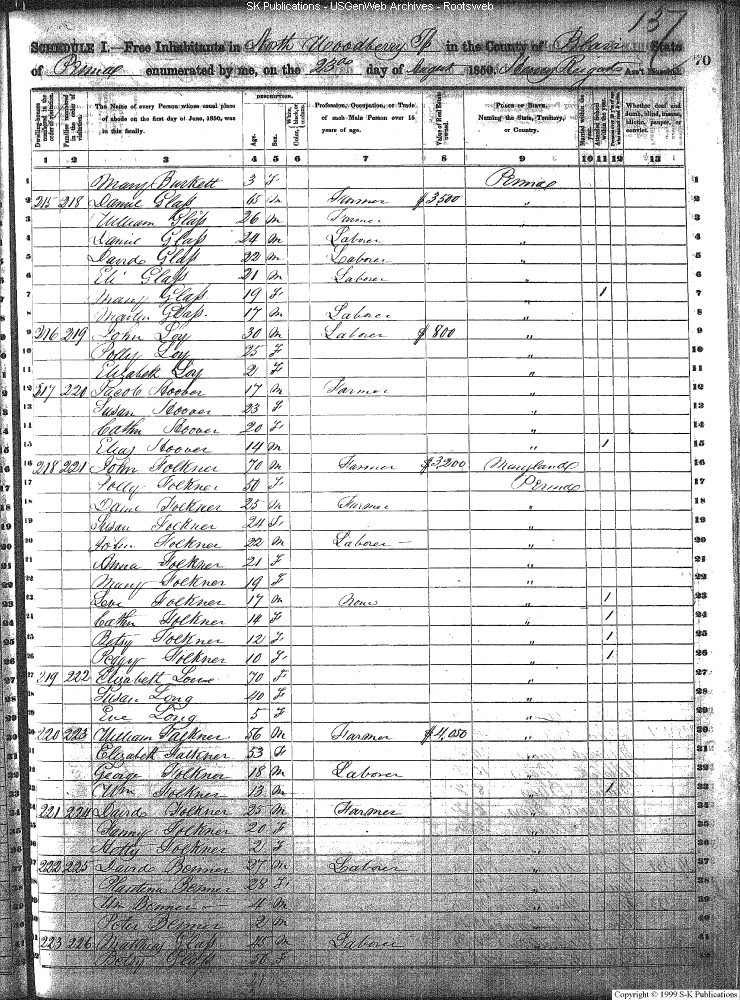 SK Publications - USGenWeb Archives - Rootsweb
137
SCHEDULE I.—Free Inhabitants in North Woodberry Tp in the County of Blair State 70
of Penna enumerated by me, on the 23d day of August 1850. Henry Ass't Marshal.
DESCRIPTION.
Dwelling-houses numbered in the order of visitation. Families numbered in the order of visitation. The Name of every Person whose usual place of abode on the first day of June, 1850, was in this family. Age. Sex. White, black, or mulatto. Color, Profession, Occupation, or Trade of each Male Person over 15 years of age. Value of Real Estate owned. Place of Birth. Naming the State, Territory, or Country. Married within the year. Attended School within the year. Whether deaf and dumb, blind, insane, idiotic, pauper, or convict.
1 2 3 4 5 6 7 8 9 10 11 12 13
1 Mary Burkett 3 F Penna 1
2 215 218 Daniel Glass 65 M Farmer $3,500 " 2
3 William Glass 26 M Farmer " 3
4 Daniel Glass 24 M Laborer " 4
5 David Glass 22 M Laborer " 5
6 Eli Glass 21 M Laborer " 6
7 Mary Glass 19 F " 1 7
8 Martin Glass 17 M Laborer " 8
9 216 219 John Loy 30 M Laborer $800 " 9
10 Polly Loy 25 F " 10
11 Elizabeth Loy 2 F " 11
12 217 220 Jacob Hoover 17 M Farmer " 12
13 Susan Hoover 23 F " 13
14 Cathn Hoover 20 F " 14
15 Elias Hoover 14 M " 1 15
16 218 221 John Folkner 70 M Farmer $3,200 Maryland 16
17 Folkner 50 F Penna 17
18 Danl Folkner 25 M Farmer " 18
19 Susan Folkner 24 F " 19
20 John Folkner 22 M Laborer — " 20
21 Anna Folkner 21 F " 21
22 Mary Folkner 19 F " 22
23 Levi Folkner 17 M None " 1 23
24 Cathn Folkner 14 F " 1 24
25 Betsy Folkner 12 F " 1 25
26 Peggy Folkner 10 F " 1 26
27 219 222 Elizabeth 70 F " 27
28 Susan Long 40 F " 28
29 Eve Long 5 F " 29
30 220 223 William Falkner 56 M Farmer $4,050 " 30
31 Elizabeth Falkner 53 F " 31
32 George Folkner 18 M Laborer " 32
33 Wm Folkner 13 M " 1 33
34 221 224 David Folkner 25 M Farmer " 34
35 Fanny Folkner 20 F " 35
36 Folkner 2 F " 36
37 222 225 David Benner 27 M Laborer " 37
38 Benner 28 F " 38
39 Wm Benner 4 M " 39
40 Peter Benner 2 M " 40
41 223 226 Matthias Glass 45 M Laborer " 41
42 Betsy Glass 50 F " 42
Copyright © 1999 S-K Publications